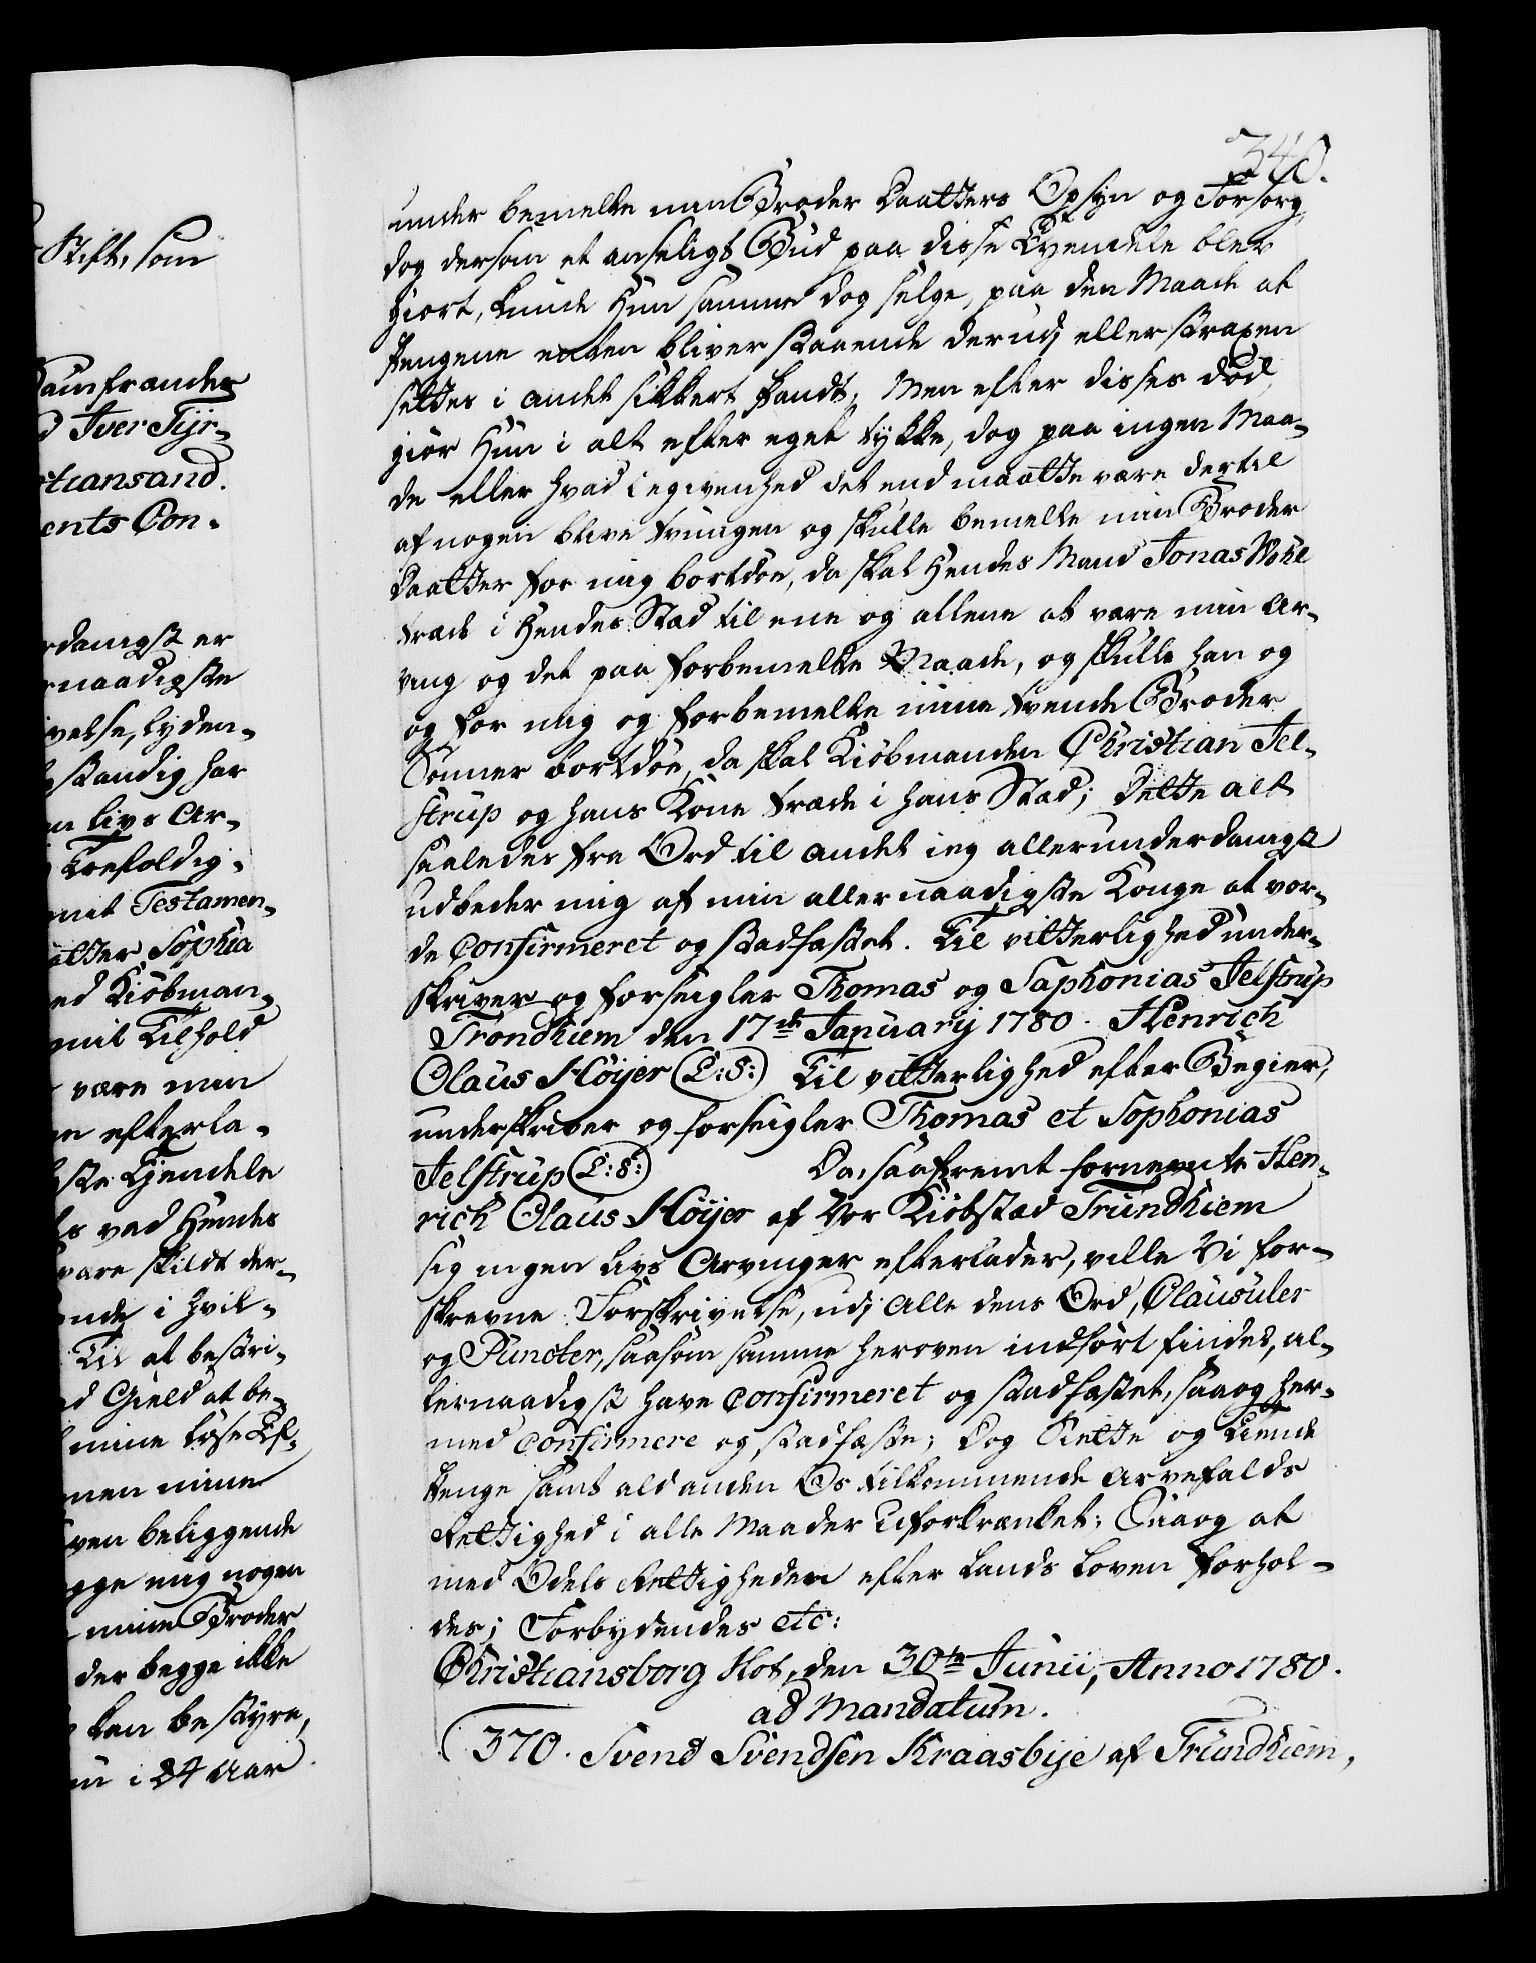 Stift, som
ristiansand.
ents Con-
rdanigst er
rnaadigste
velse, lyden-
standig har
en livs Ar-
trefoldig-
mit Testamen-
atter Sophia
ed Kiöbman-
mit Tilhold
være min
en efterla-
ste Eyendele
ved Hendes
være skildt der-
ende i hvil-
Til at bestri-
d Gield at be-
mine løse Ef-
men mine
ven beliggende
gge mig nogen
mine Broder
der begge ikke
kan bestyre,
i 24 Aar
340.
under bemelte min Broder Daatters Opsyn og Forsorg,
dog dersom et anseligt Bud paa disse Eyendele blev
giort, kunde Hun samme dog selge, paa den Maade at
Pengene enten bliver staaende derudj eller straxen
settes i andet sikkert Pandt, Men efter disses död
giör Hun i alt efter eget tykke, dog paa ingen Maa-
de eller hvad Legivenhed det end maatte være dertil
af nogen blive tvungen og skulle bemelte min Broder
Daatter før mig bortdöe, da skal Hendes Mand Jonas Wohl
træde i Hendes Stæd til ene og allene at være min Ar-
ving og det paa forbemelte Maade, og skulle han og
og før mig og forbemelte mine tvende Broder
Sönner bortdöe, da skal Kiöbmanden Christian Jel-
strup og hans Kone træde i hans Stæd; Dette alt
saaledes fra Ord til andet ieg allerunderdanigst
udbeder mig af min allernaadigste Konge at vor-
de confirmeret og stadfæstet. Til vitterlighed under-
skriver og forseigler Thomas og Saphonias Jelstrup
Trondhiem den 17de Januarij 1780. Henrich
Olaus Höijer (L:S:) Til vitterlighed efter Begier,
underskriver og forseigler Thomas et Sophonias
Jelstrup (L:S:) Da, saafremt fornevnte Hen-
rich Olaus Höijer af Vor Kiöbstæd Trundhiem
sig ingen livs Arvinger efterlader, ville Vi for-
skrevne Forskrivelse, udj alle dens Ord, Clausuler
og Puncter, saasom samme heroven indfört findes, al-
lernaadigst have confirmeret og stadfæstet, saa og her-
med confirmere og stadfæste; Dog Siette og Tiende
Penge samt ald anden Os tilkommende Arvefalds
Rettighed i alle Maader Uforkrænket; Saa og at
med Odels Rettigheden efter Lands Loven forhol-
des; Forbydendes etc:
Christiansborg Slot, den 30te Junii, Anno 1780.
ad Mandatum.
370. Svend Svendsen Kraasbije af Trundhiem,